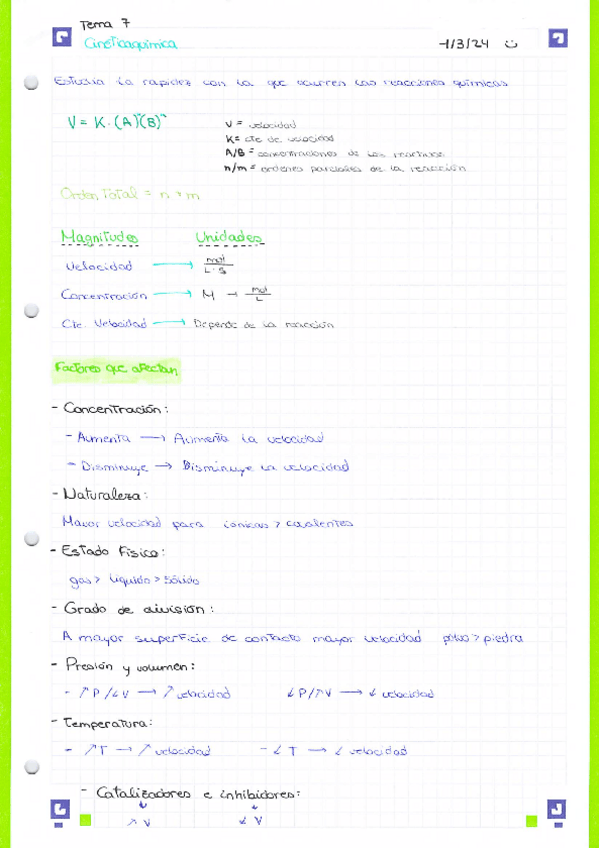 Tema 7
Cinética química -1/3/24
Estudia la rapidez con la que ocurren las reacciones químicas
V = K · (A)ⁿ(B)ᵐ
V = velocidad
K = cte de velocidad
A/B = concentraciones de los reactivos
n/m = ordenes parciales de la reacción
Orden Total = n + m
Magnitudes Unidades
Velocidad → mol
L · s
Concentración → M → mol
L
Cte. Velocidad → Depende de la reacción
Factores que afectan
- Concentración:
- Aumenta → Aumenta la velocidad
- Disminuye → Disminuye la velocidad
- Naturaleza:
Mayor velocidad para iónicas > covalentes
- Estado Físico:
gas > líquido > sólido
- Grado de división:
A mayor superficie de contacto mayor velocidad polvo > piedra
- Presión y volumen:
- ↗P/↙V → ↗velocidad ↙P/↗V → ↙velocidad
- Temperatura:
- ↗T → ↗velocidad - ↙T → ↙velocidad
- Catalizadores e inhibidores:
↗V ↙V